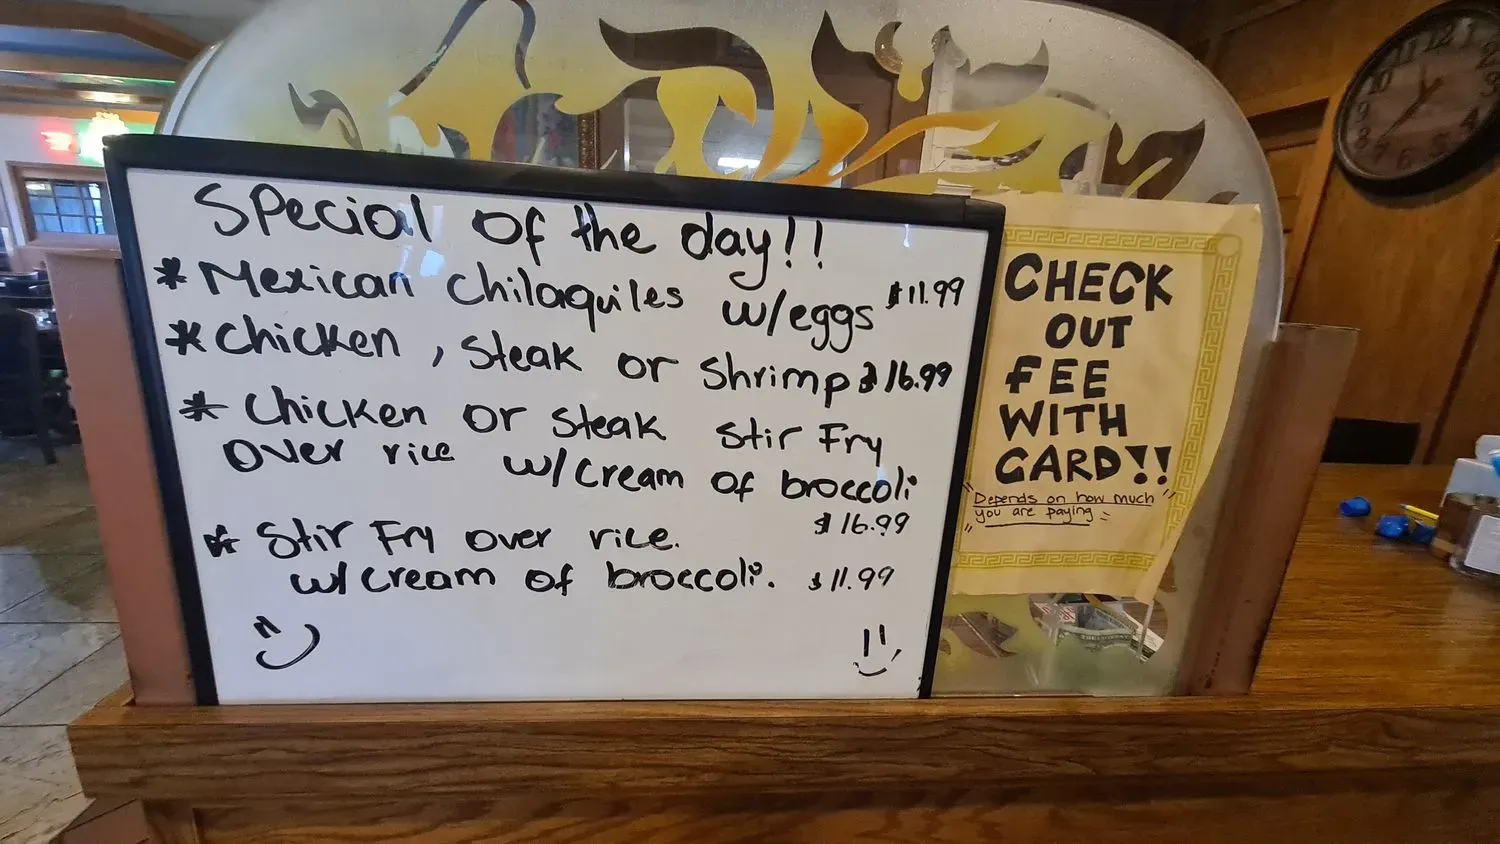 Special of the day!!
* Mexican Chilaquiles w/eggs $11.99
* Chicken, Steak or Shrimp $16.99
* Chicken or Steak Stir Fry
over rice w/cream of broccoli
$16.99
* Stir Fry over rice.
w/cream of broccoli. $11.99
CHECK
OUT
FEE
WITH
CARD!!
"Depends on how much
you are paying"
11 12
10
2
4
6